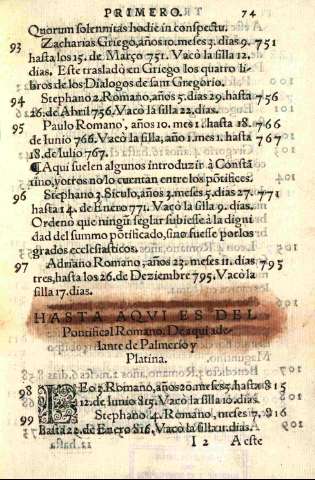 PRIMERO. 74
Quorum solemnitas hodie in conspectu.
93 Zacharias Griego, años 10. meses 3. dias 9. 751
hasta los 15. de Março 751. Vacò la silla 12.
dias. Este trasladò en Griego los quatro li
bros de los Dialogos de san Gregorio.
94 Stephano 2. Romano, años 5. dias 29. hasta 756
26. de Abril 756. Vacò la silla 22. dias.
95 Paulo Romano, años 10. mes 1. hasta 18. 766
de Iunio 766. Vacò la silla, año 1. mes 1. hasta 767
18. de Iulio 767.
¶Aqui suelen algunos introduzir à Constã
tino, y otros no lo cuentan entre los põtifices.
96 Stephano 3. Siculo, años 2. meses 5. dias 27. 771
hasta 14. de Enero 771. Vacò la silla 9. dias.
Ordenò que ningũ seglar subiesse à la digni
dad del summo põtificado, sino fuesse por los
grados ecclesiasticos.
97 Adriano Romano, años 22. meses 11. dias 795
tres, hasta los 26. de Deziembre 795. Vacò la
silla 17. dias.
HASTA AQVI ES DEL
Pontifical Romano. De aqui ade-
lante de Palmerio y
Platina.
98 LEo 3. Romano, años 20. meses 5. hasta 815
12. de Iunio 815. Vacò la silla 10. dias.
Stephano 4. Romano, meses 7. 816
99 hasta 22. de Enero 816. Vacò la silla 11. dias.
I 2 A este